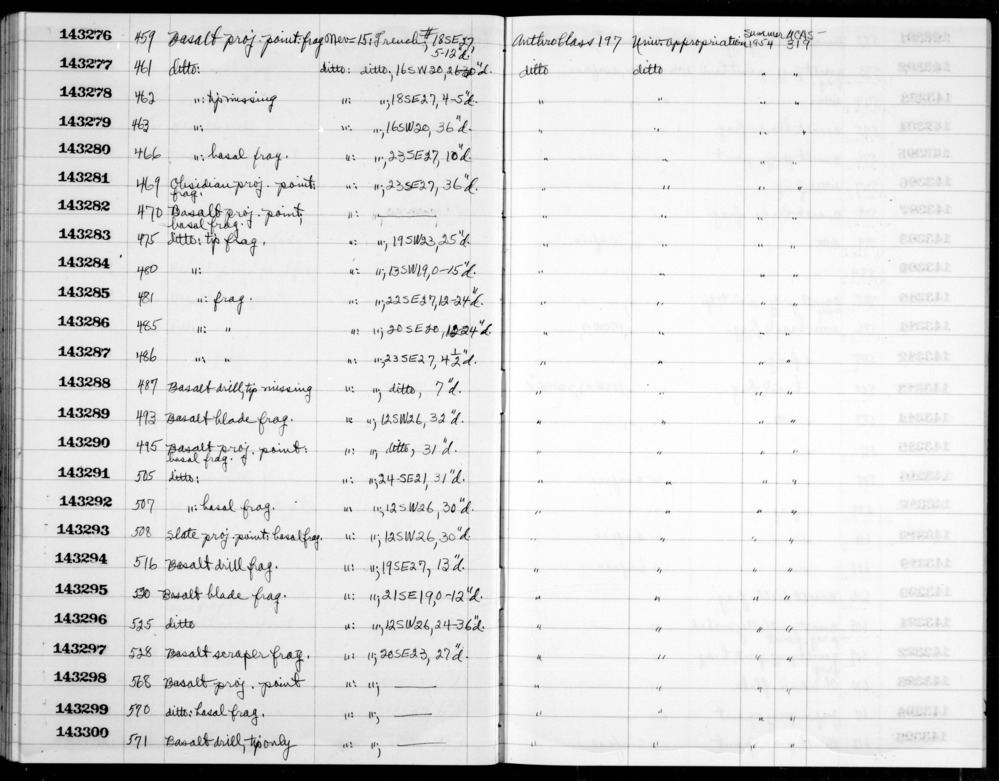 143276 459 Basalt proj. point: frag Nev-15: Trench #, 18SE27, 5-12"d. Anthro Class 197 Univ. appropriation Summer 1954 UCAS-319
143277 461 ditto: ditto: ditto, 16SW20, 26-30"d. ditto ditto " "
143278 462 ": tip missing ": ", 18SE27, 4-5"d. " " " "
143279 463 ": ": ", 16SW20, 36"d. " " " "
143280 466 ": basal frag. ": ", 23SE27, 10"d. " " " "
143281 469 Obsidian proj. point: frag. ": ", 23SE27, 36"d. " " " "
143282 470 Basalt proj. point, basal frag. ": " " " "
143283 475 ditto: tip frag. ": ", 19SW23, 25"d. " " " "
143284 480 ": ": ", 13SW19, 0-15"d. " " " "
143285 481 ": frag. ": ", 22SE27, 12-24"d. " " " "
143286 485 ": " ": ", 20SE20, 12-24"d. " " " "
143287 486 ": " ": ", 23SE27, 4½"d. " " " "
143288 487 Basalt drill, tip missing ": ", ditto, 7"d. " " " "
143289 493 Basalt blade frag. " ", 12SW26, 32"d. " " " "
143290 495 Basalt proj. point: basal frag. ": ", ditto, 31"d. " " " "
143291 505 ditto: ": ", 24-SE21, 31"d. " " " "
143292 507 ": basal frag. ": ", 12SW26, 30"d. " " " "
143293 508 Slate proj. point: basal frag. ": ", 12SW26, 30"d. " " " "
143294 516 Basalt drill frag. ": ", 19SE27, 13"d. " " " "
143295 Basalt blade frag. ": ", 21SE19, 0-12"d. " " " "
143296 525 ditto ": ", 12SW26, 24-36"d. " " " "
143297 528 Basalt scraper frag. ": ", 20SE23, 27"d. " " " "
143298 568 Basalt proj. point ": ", — " " " "
143299 570 ditto: basal frag. ": ", — " " " "
143300 571 Basalt drill, tip only ": ", — " " " "